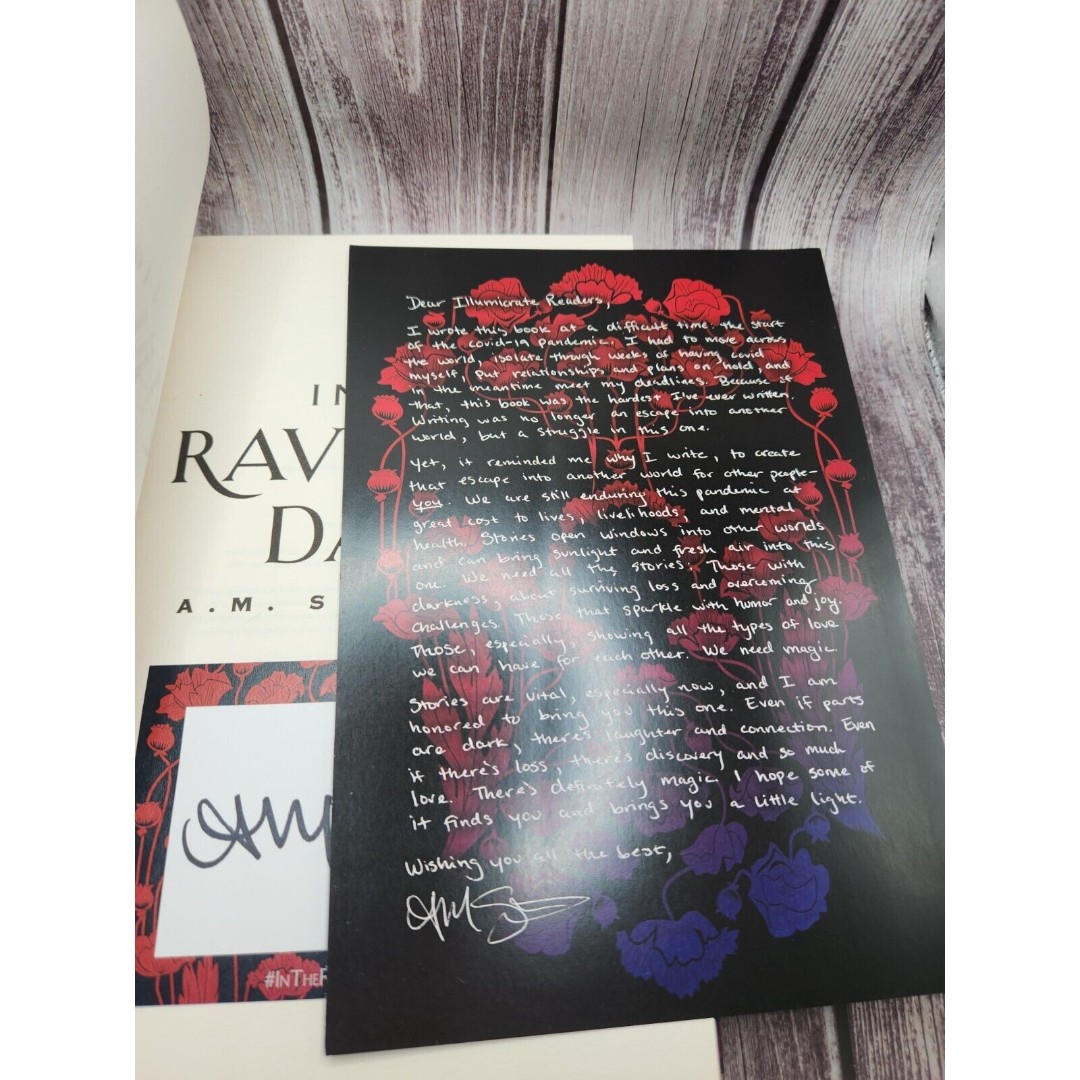 IN
RAV
DA
A.M. S
AM
#INTHER
Dear Illumicrate Readers,
I wrote this book at a difficult time: the start
of the covid-19 pandemic. I had to move across
the world, isolate through weeks of having covid
myself, put relationships and plans on hold, and
in the meantime meet my deadlines. Because of
that, this book was the hardest I've ever written.
Writing was no longer an escape into another
world, but a struggle in this one.
Yet, it reminded me why I write, to create
that escape into another world for other people-
you. We are still enduring this pandemic at
great cost to lives, livelihoods, and mental
health. Stories open windows into other worlds
and can bring sunlight and fresh air into this
one. We need all the stories. Those with
darkness, about surviving loss and overcoming
challenges. Those that sparkle with humor and joy.
Those, especially, showing all the types of love
we can have for each other. We need magic.
Stories are vital, especially now, and I am
honored to bring you this one. Even if parts
are dark, there's laughter and connection. Even
if there's loss, there's discovery and so much
love. There's definitely magic. I hope some of
it finds you and brings you a little light.
Wishing you all the best,
AM S